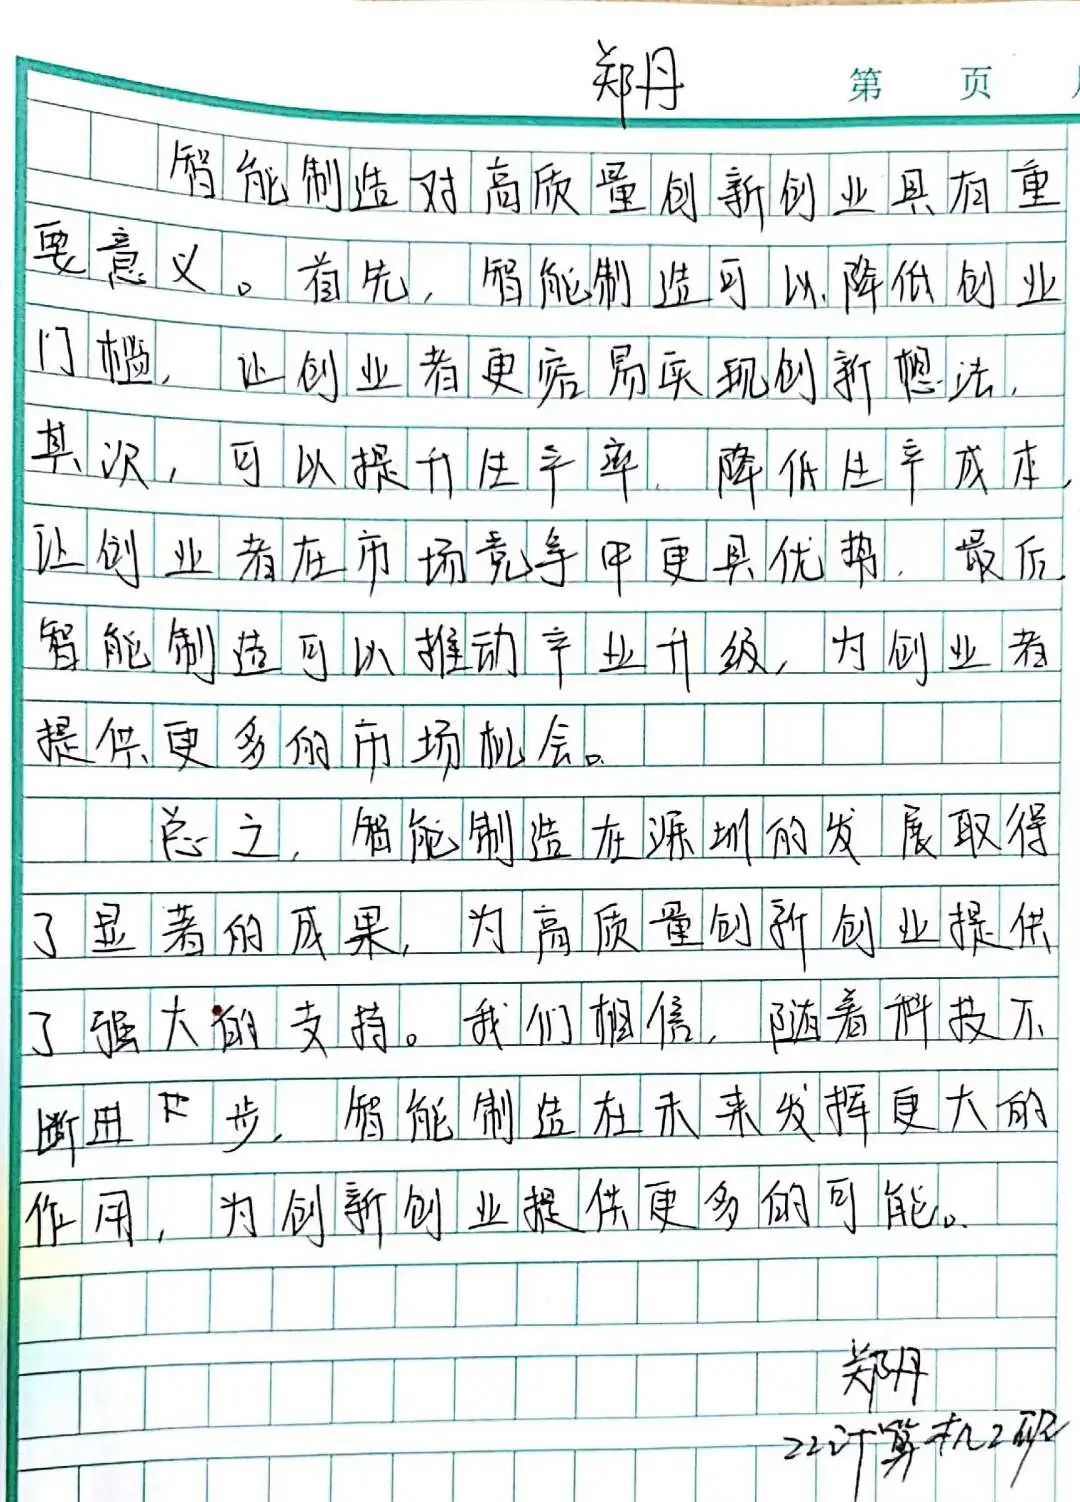 郑丹
第 页
智能制造对高质量创新创业具有重
要意义。首先,智能制造可以降低创业
门槛,让创业者更容易实现创新想法,
其次,可以提升生产率,降低生产成本,
让创业者在市场竞争中更具优势,最后,
智能制造可以推动产业升级,为创业者
提供更多的市场机会。
总之,智能制造在深圳的发展取得
了显著的成果,为高质量创新创业提供
了强大的支持。我们相信,随着科技不
断进步,智能制造在未来发挥更大的
作用,为创新创业提供更多的可能。
郑丹
22计算机2班